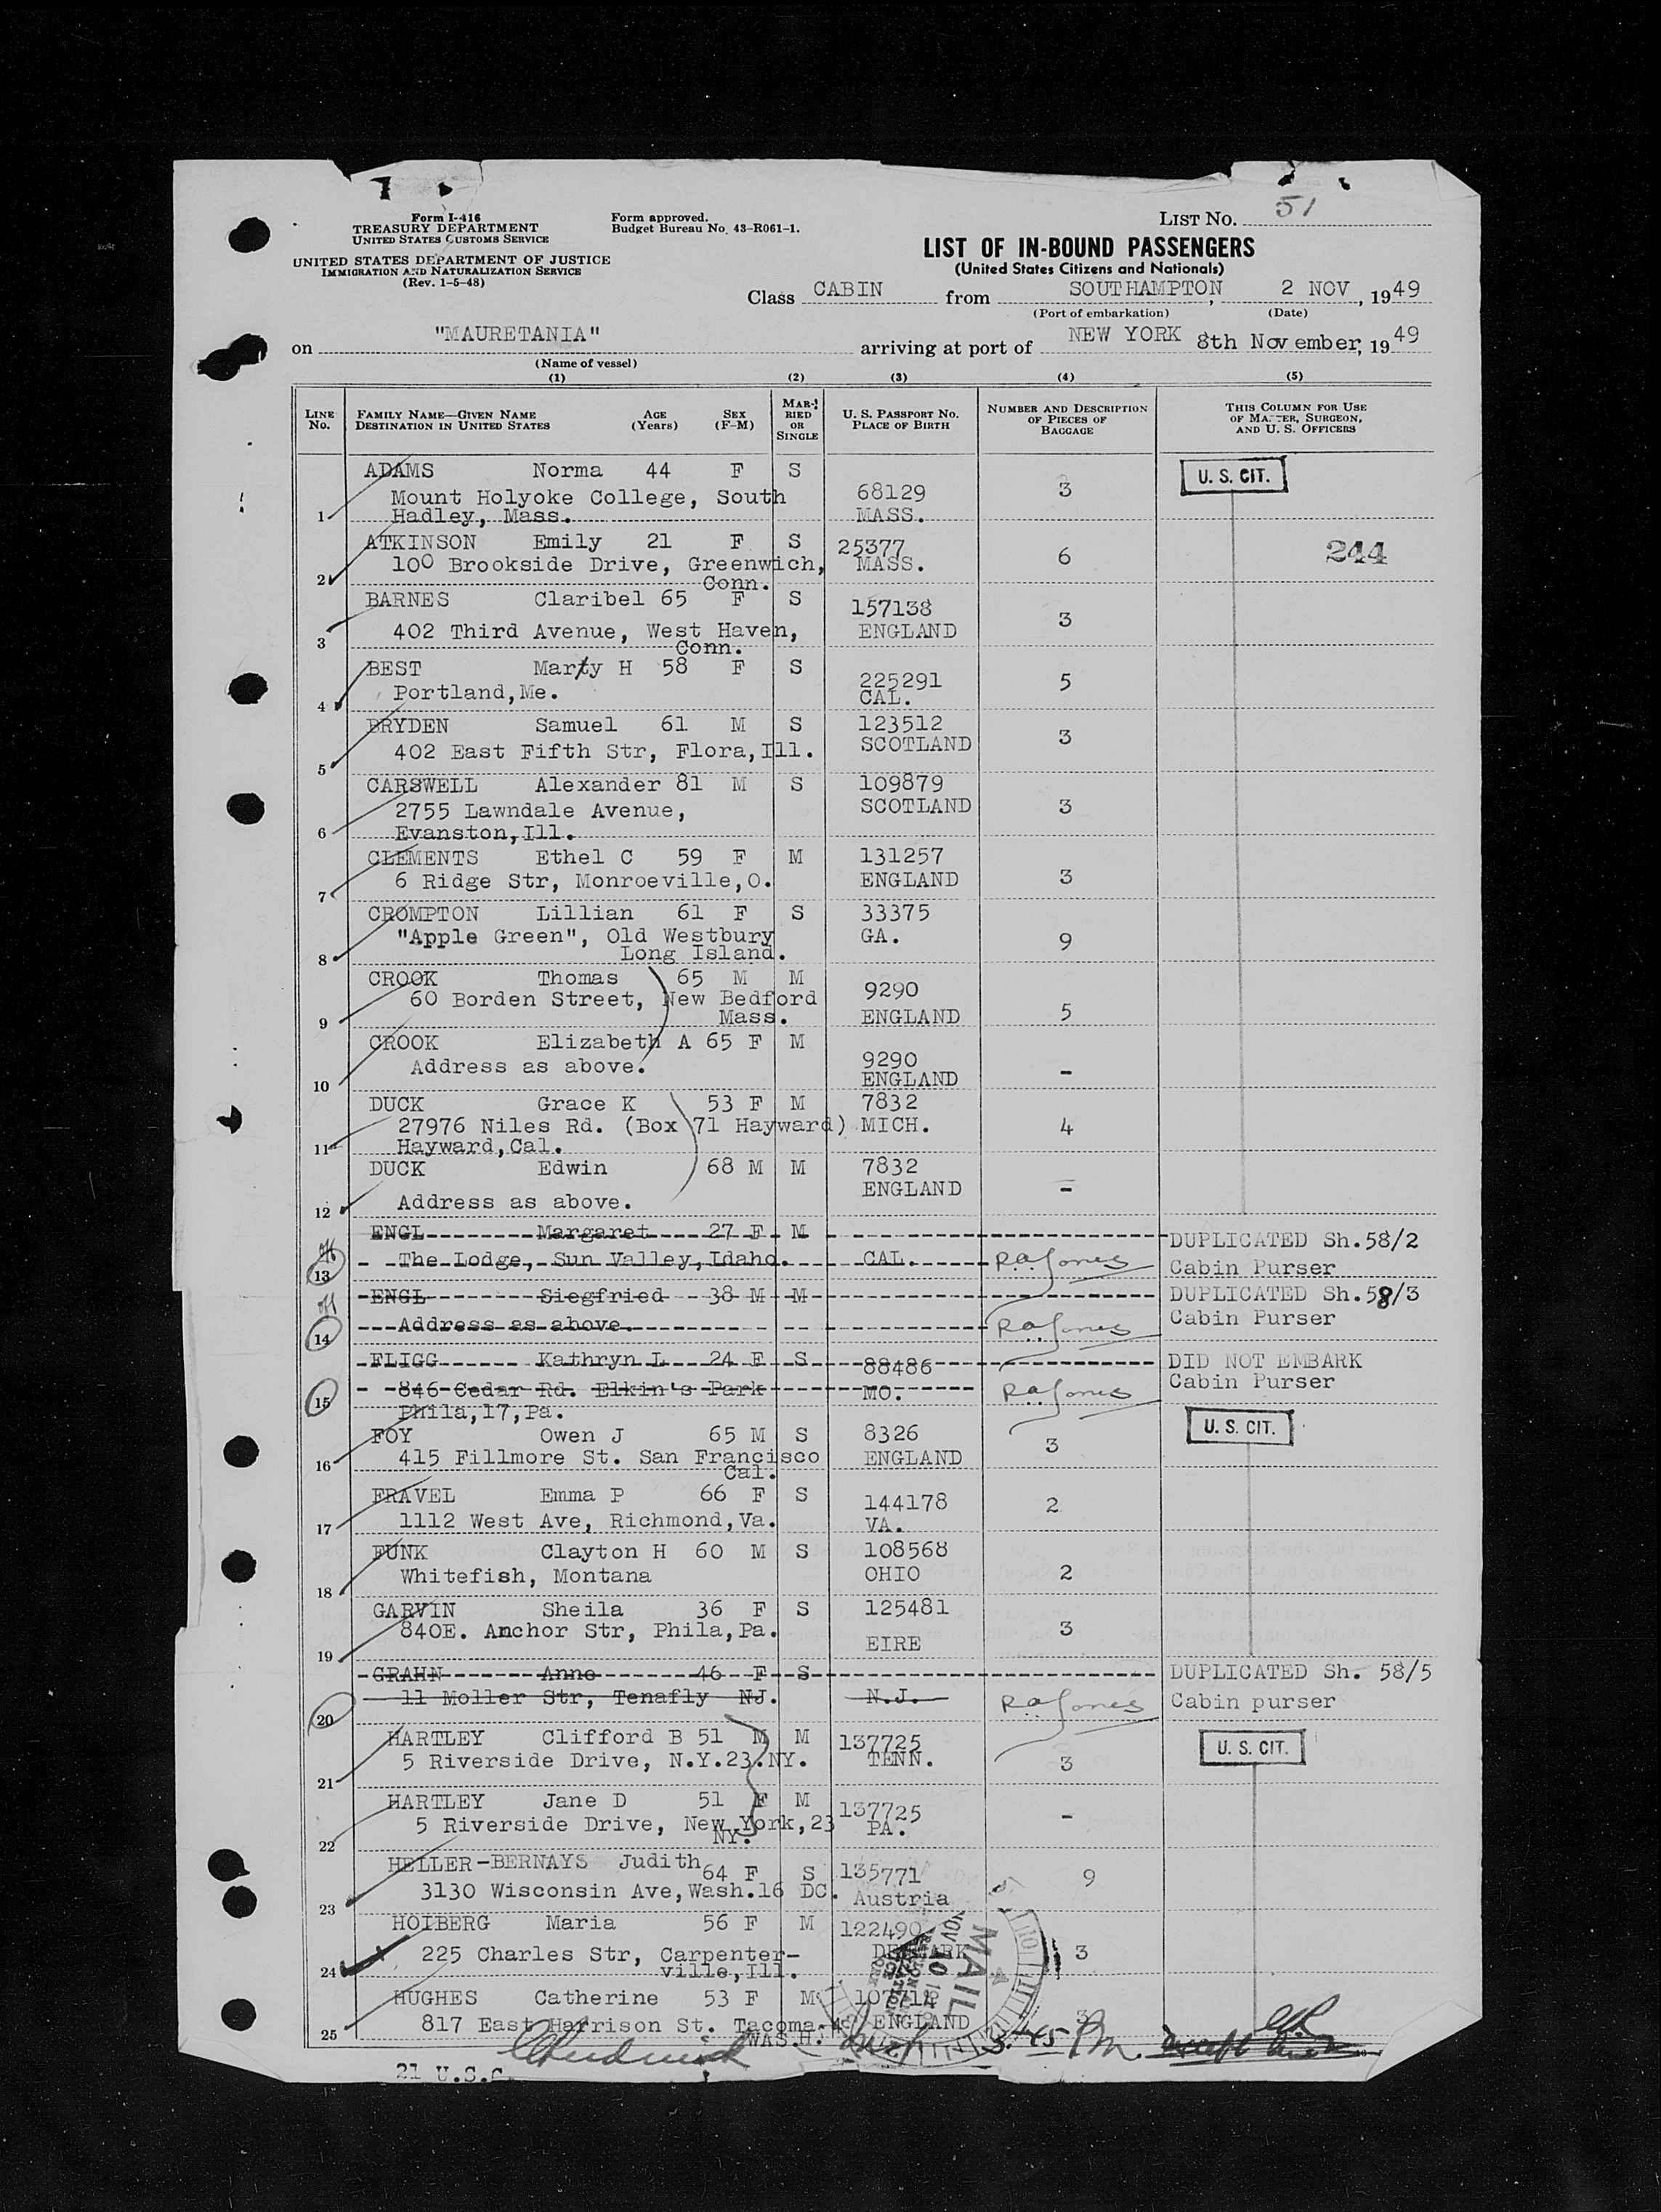 Form I-416
TREASURY DEPARTMENT
UNITED STATES CUSTOMS SERVICE
UNITED STATES DEPARTMENT OF JUSTICE
IMMIGRATION AND NATURALIZATION SERVICE
(Rev. 1-5-48)
Form approved.
Budget Bureau No. 43-R061-1.
LIST NO. 51
LIST OF IN-BOUND PASSENGERS
(United States Citizens and Nationals)
Class CABIN from SOUTHAMPTON, 2 NOV, 1949
(Port of embarkation) (Date)
on "MAURETANIA" arriving at port of NEW YORK 8th November, 1949
(Name of vessel)
(1) (2) (3) (4) (5)
LINE NO. FAMILY NAME—GIVEN NAME DESTINATION IN UNITED STATES AGE (Years) SEX (F-M) MARRIED OR SINGLE U. S. PASSPORT NO. PLACE OF BIRTH NUMBER AND DESCRIPTION OF PIECES OF BAGGAGE THIS COLUMN FOR USE OF MASTER, SURGEON, AND U. S. OFFICERS
ADAMS Norma 44 F S U. S. CIT.
Mount Holyoke College, South 68129 3
1 Hadley, Mass. MASS.
ATKINSON Emily 21 F S 25377 244
100 Brookside Drive, Greenwich, MASS. 6
2 Conn.
BARNES Claribel 65 F S 157138
402 Third Avenue, West Haven, ENGLAND 3
3 Conn.
BEST Marty H 58 F S 225291 5
4 Portland, Me. CAL.
BRYDEN Samuel 61 M S 123512 3
402 East Fifth Str, Flora, Ill. SCOTLAND
5
CARSWELL Alexander 81 M S 109879
2755 Lawndale Avenue, SCOTLAND 3
6 Evanston, Ill.
CLEMENTS Ethel C 59 F M 131257
6 Ridge Str, Monroeville, O. ENGLAND 3
7
CROMPTON Lillian 61 F S 33375
"Apple Green", Old Westbury GA. 9
8 Long Island.
CROOK Thomas 65 M M 9290
60 Borden Street, New Bedford ENGLAND 5
9 Mass.
CROOK Elizabeth A 65 F M 9290
Address as above. ENGLAND -
10
DUCK Grace K 53 F M 7832
27976 Niles Rd. (Box 71 Hayward) MICH. 4
11 Hayward, Cal.
DUCK Edwin 68 M M 7832
12 Address as above. ENGLAND -
ENGL Margaret 27 F M DUPLICATED Sh.58/2
The Lodge, Sun Valley, Idaho. CAL. R a Jones Cabin Purser
13
ENGL Siegfried 38 M M DUPLICATED Sh.58/3
Address as above. R a Jones Cabin Purser
14
FLIGG Kathryn L 24 F S 88486 DID NOT EMBARK
846 Cedar Rd. Elkin's Park MO. R a Jones Cabin Purser
15 Phila, 17, Pa.
FOY Owen J 65 M S 8326 3 U. S. CIT.
415 Fillmore St. San Francisco ENGLAND
16 Cal.
FRAVEL Emma P 66 F S 144178 2
17 1112 West Ave, Richmond, Va. VA.
FUNK Clayton H 60 M S 108568
Whitefish, Montana OHIO 2
18
GARVIN Sheila 36 F S 125481
840E. Anchor Str, Phila, Pa. EIRE 3
19
GRAHN Anne 46 F S DUPLICATED Sh. 58/5
11 Moller Str, Tenafly NJ. N.J. R a Jones Cabin purser
20
HARTLEY Clifford B 51 M M 137725 U. S. CIT.
5 Riverside Drive, N.Y.23.NY. TENN. 3
21
HARTLEY Jane D 51 F M 137725 -
5 Riverside Drive, New York, 23 PA.
22 NY.
HELLER-BERNAYS Judith 64 F S 135771 9
3130 Wisconsin Ave, Wash.16 DC. Austria
23
HOIBERG Maria 56 F M 122490
225 Charles Str, Carpenter- DENMARK 3
24 ville, Ill.
HUGHES Catherine 53 F M 107714
817 East Harrison St. Tacoma ENGLAND 3
25 WASH.
MAIL
NOV 10
3:45 Pm.
21 U.S.C.